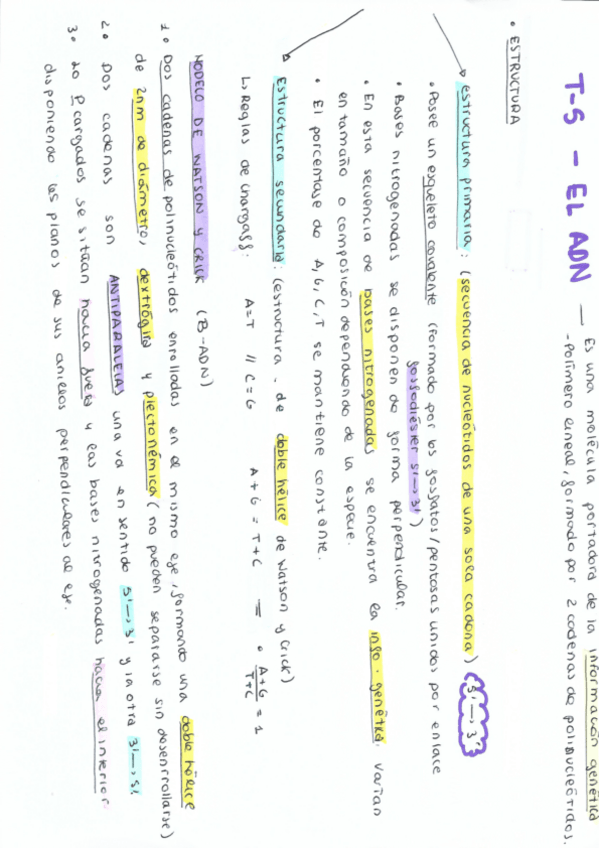 T-5 - EL ADN — Es una molécula portadora de la información genética
- Polímero lineal, formado por 2 cadenas de polinucleótidos.
• ESTRUCTURA
estructura primaria: (secuencia de nucleótidos de una sola cadena) 5'→3'
• Posee un esqueleto covalente (formado por los fosfatos/pentosas unidos por enlace
fosfodiéster 5'→3')
• Bases nitrogenadas se disponen de forma perpendicular.
• En esta secuencia de bases nitrogenadas se encuentra la info. genética. Varían
en tamaño o composición dependiendo de la especie.
• El porcentaje de A, G, C, T se mantiene constante.
Estructura secundaria: (estructura de doble hélice de Watson y Crick)
↳ Reglas de Chargaff: A=T // C=G A+G = T+C — • A+G/T+C = 1
MODELO DE WATSON Y CRICK (B-ADN)
1• Dos cadenas de polinucleótidos enrolladas en el mismo eje, formando una doble hélice
de 2nm de diámetro, dextrógira y plectonémica (no pueden separarse sin desenrrollarse)
2• Dos cadenas son ANTIPARALELAS una va en sentido 5'→3' y la otra 3'→5'
3• Lo P cargados se sitúan hacia fuera y las bases nitrogenadas hacia el interior
disponiendo los planos de sus anillos perpendiculares al eje.